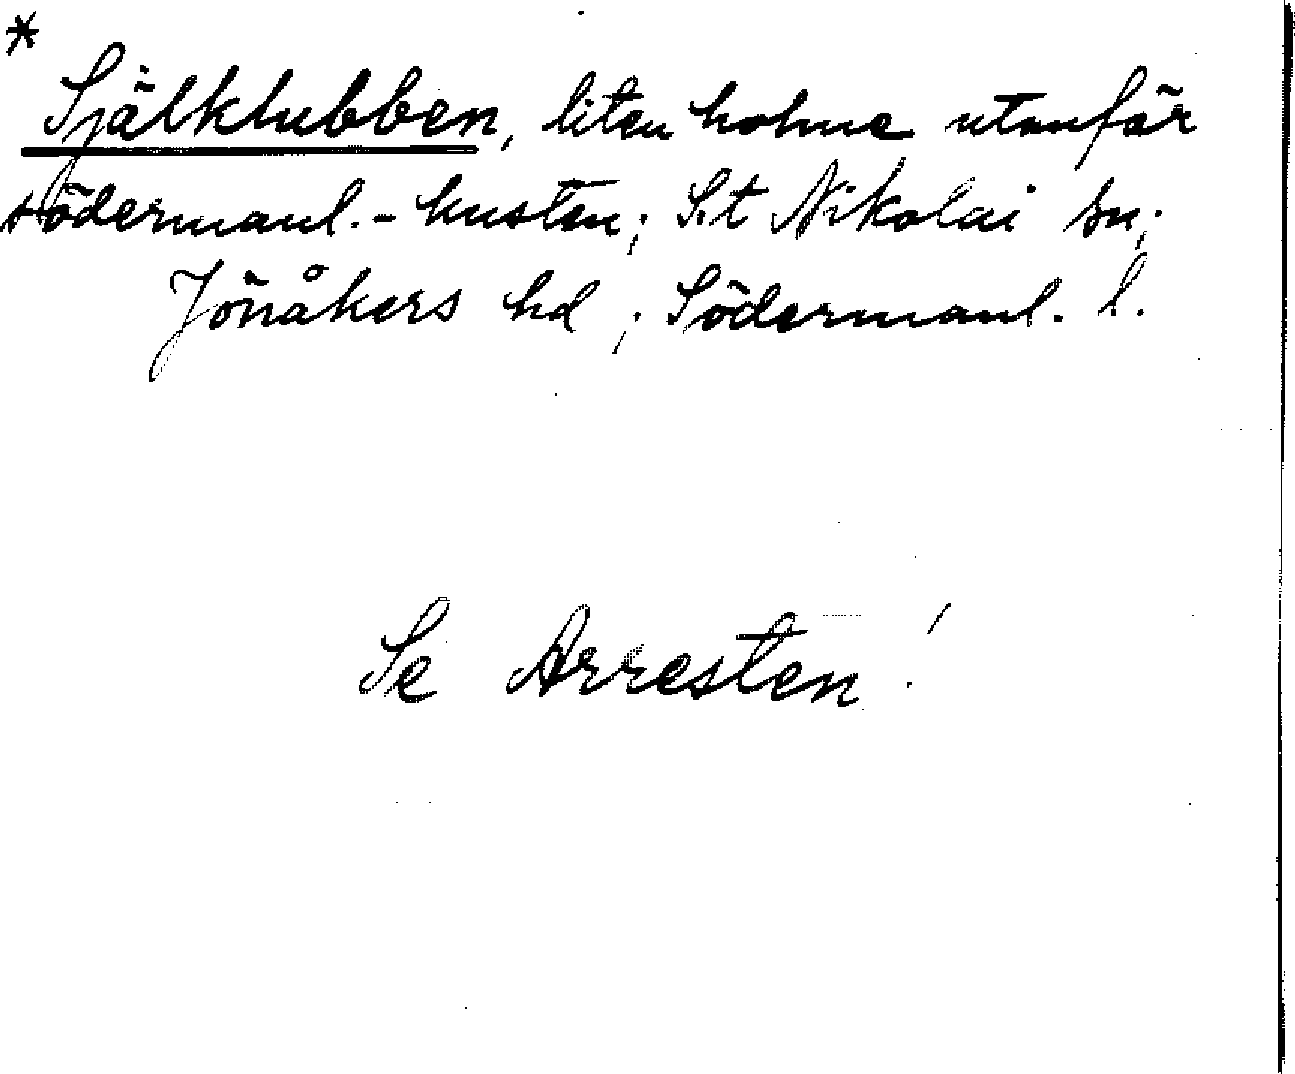 *
Själklubben, liten holme utanför
södermanl.-kusten; S:t Nikolai sn;
Jönåkers hd; Södermanl. l.
Se Arresten!